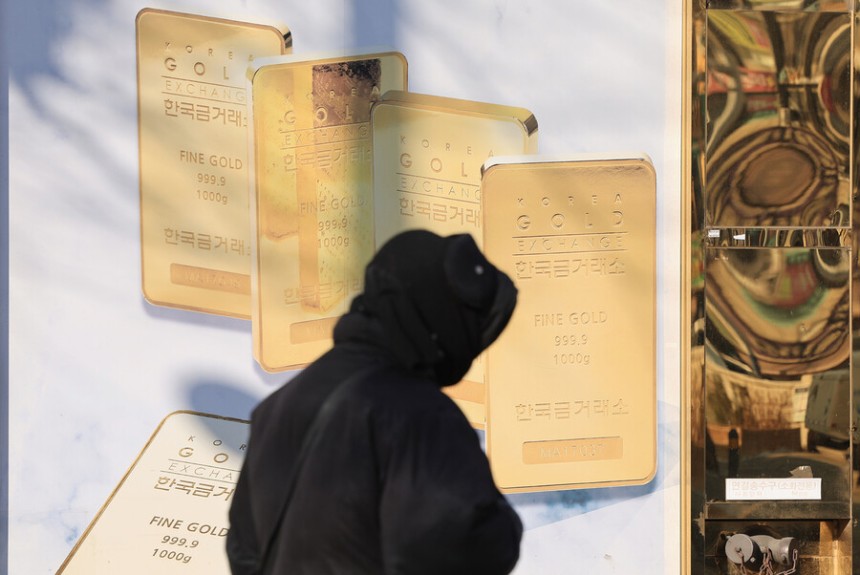 KOREA
GOL
EXCHANGE
한국금거래소
FINE GOLD
999.9
1000g
한국금거래
KOREA
GOLD
EXCHANGE
한국금거래
FINE GOLD
999.9
1000g
한국금
KOREA
GOL
EXCHANG
한국금거래
KOREA
GOLD
EXCHANGE
한국금거래소
FINE GOLD
999.9
1000g
한국금거래소
KOR
GO
EXCHANGE
한국금거래
FINE GOLD
999.9
1000g